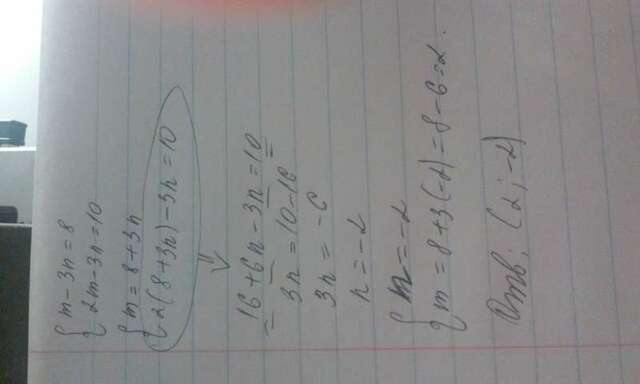 { m - 3n = 8
{ 2m - 3n = 10
{ m = 8 + 3n
{ 2(8 + 3n) - 3n = 10
16 + 6n - 3n = 10
3n = 10 - 16
3n = -6
n = -2
{ n = -2
{ m = 8 + 3(-2) = 8 - 6 = 2.
Отв: (2; -2)